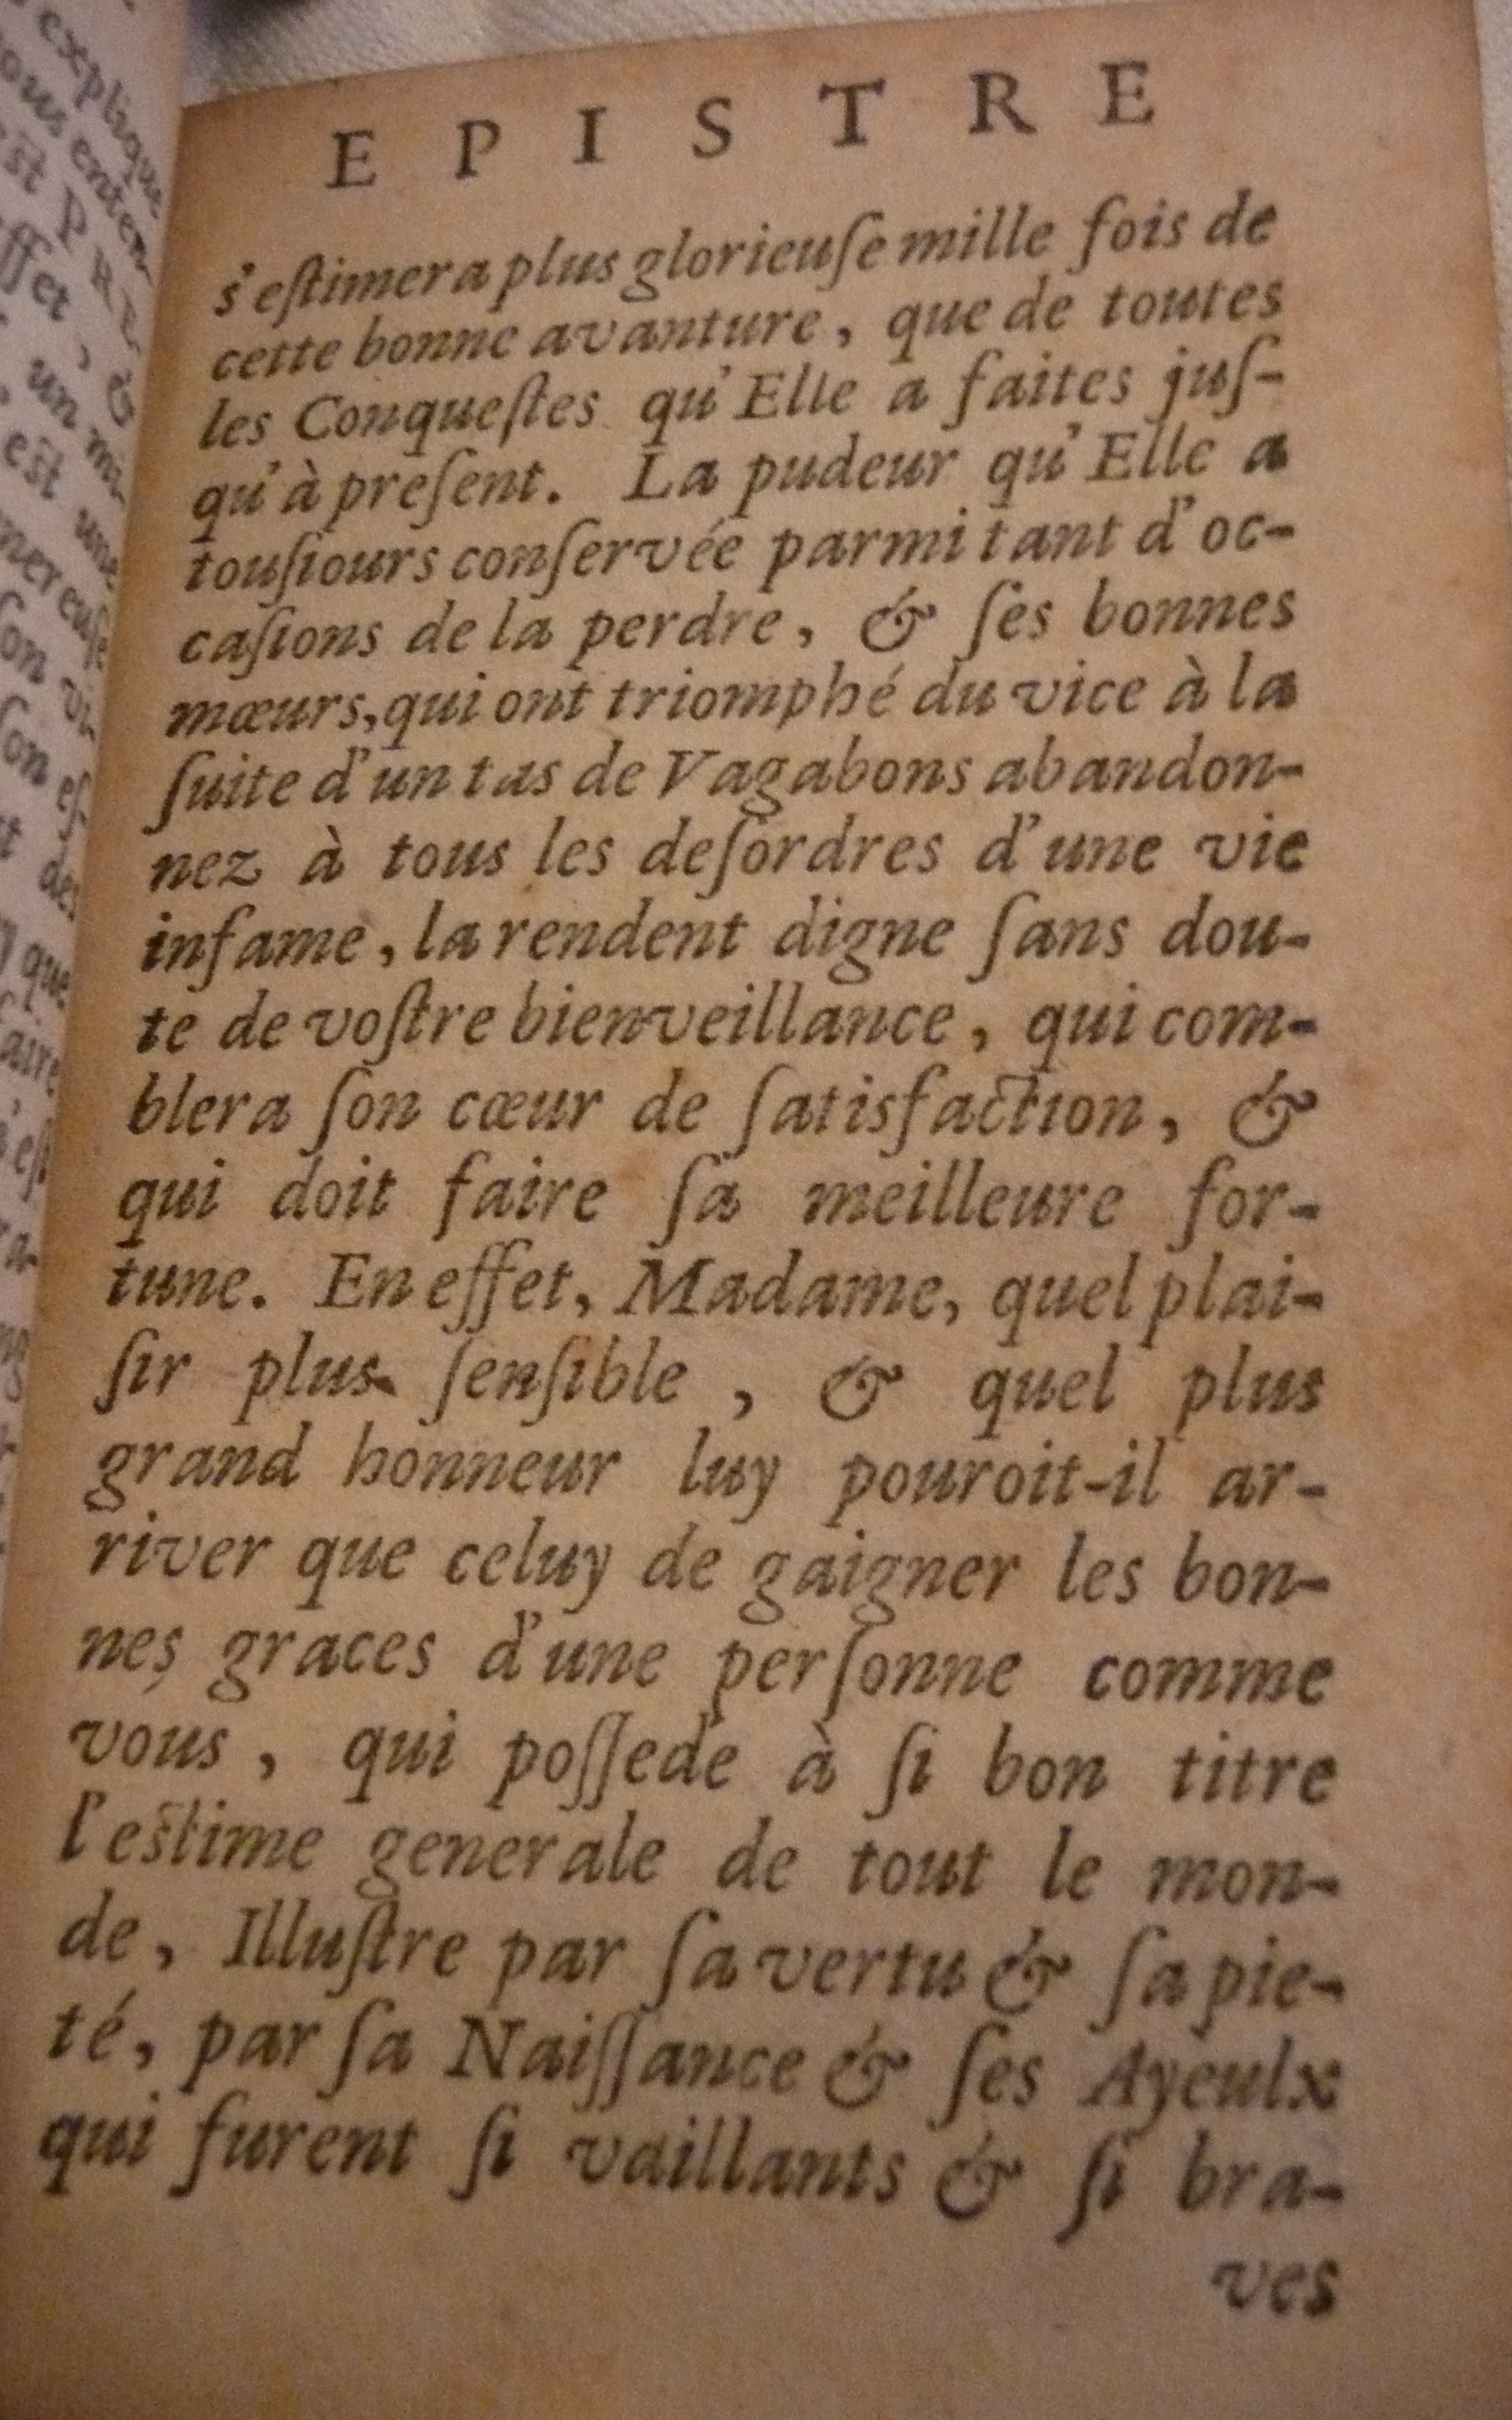 explique
ous enten
est PRE
ffet, &
un mi-
est une
EPISTRE
s'eſtimera plus glorieuſe mille fois de
cette bonne avanture, que de toutes
les Conqueſtes qu'Elle a faites juſ-
qu'à preſent. La pudeur qu'Elle a
touſiours conſervée parmi tant d'oc-
caſions de la perdre, & ſes bonnes
mœurs, qui ont triomphé du vice à la
ſuite d'un tas de Vagabons abandon-
nez à tous les deſordres d'une vie
infame, la rendent digne ſans dou-
te de voſtre bienveillance, qui com-
blera ſon cœur de ſatisfaction, &
qui doit faire ſa meilleure for-
tune. En effet, Madame, quel plai-
ſir plus ſenſible, & quel plus
grand honneur luy pouroit-il ar-
river que celuy de gaigner les bon-
nes graces d'une perſonne comme
vous, qui poſſede à ſi bon titre
l'eſtime generale de tout le mon-
de, Illuſtre par ſa vertu & ſa pie-
té, par ſa Naiſſance & ſes Ayeulx
qui furent ſi vaillants & ſi bra-
ves